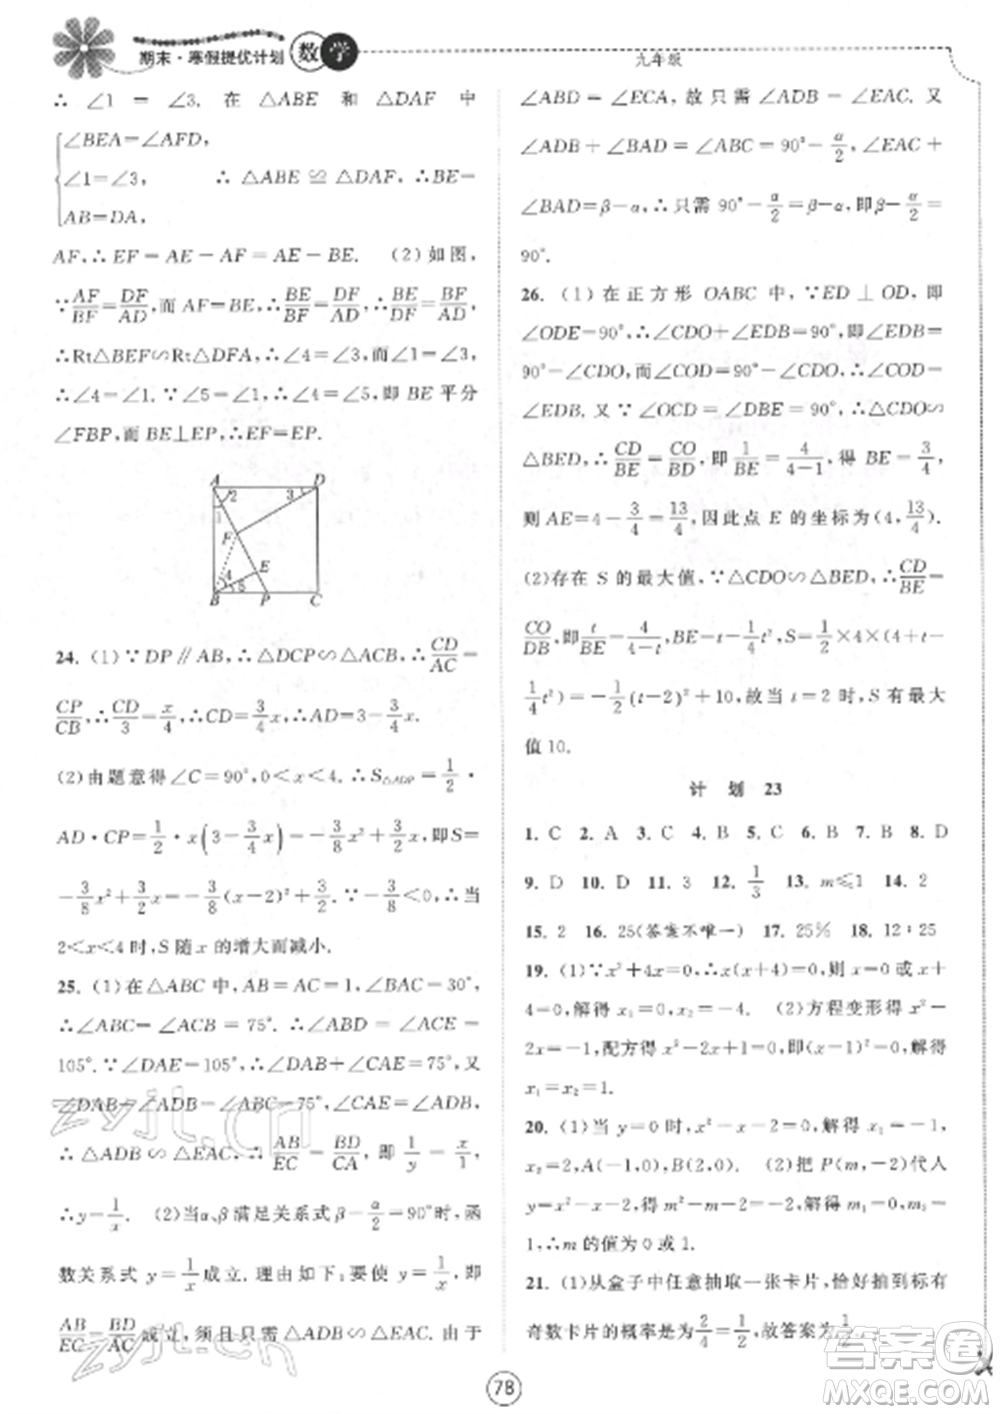 期末·寒假提优计划 数学
九年级
∴ ∠1 = ∠3. 在 △ABE 和 △DAF 中
∠BEA=∠AFD,
∠1=∠3, ∴ △ABE ≌ △DAF. ∴BE=
AB=DA,
AF,∴ EF = AF - AE = AE - BE. (2) 如图,
∵AF/BF=DF/AD,而 AF=BE,∴BE/BF=DF/AD,∴BE/DF=BF/AD,
∴Rt△BEF∽Rt△DFA,∴∠4=∠3,而∠1=∠3,
∴∠4=∠1.∵∠5=∠1,∴∠4=∠5,即 BE 平分
∠FBP,而 BE⊥EP,∴EF=EP.
A 2 3 D
1
F
4 E
5
B P C
24. (1)∵DP∥AB,∴△DCP∽△ACB,∴CD/AC=
CP/CB,∴CD/3=x/4,∴CD=3/4x,∴AD=3-3/4x.
(2)由题意得∠C=90°,0<x<4. ∴S△ADP=1/2·
AD·CP=1/2·x(3-3/4x)=-3/8x²+3/2x,即S=
-3/8x²+3/2x=-3/8(x-2)²+3/2.∵-3/8<0,∴当
2<x<4时,S随x的增大而减小.
25. (1)在△ABC中,AB=AC=1,∠BAC=30°,
∴∠ABC=∠ACB=75°.∴∠ABD=∠ACE=
105°.∵∠DAE=105°,∴∠DAB+∠CAE=75°,又
∠DAB+∠ADB=∠ABC=75°,∴∠CAE=∠ADB,
∴ △ADAB ∽ △EAC, ∴ AB/EC = BD/CA, 即 1/y = x/1,
∴y=1/x. (2)当α、β满足关系式β-α/2=90°时,函
数关系式 y=1/x成立.理由如下:要使 y=1/x,即
AB/EC=BD/AC成立,须且只需△ADB∽△EAC.由于
∠ABD=∠ECA,故只需∠ADB=∠EAC.又
∠ADB+∠BAD=∠ABC=90°-α/2,∠EAC+
∠BAD=β-α,∴只需90°-α/2=β-α,即β-α/2=
90°.
26. (1)在正方形OABC中,∵ED⊥OD,即
∠ODE=90°,∴∠CDO+∠EDB=90°,即∠EDB=
90°-∠CDO,而∠COD=90°-∠CDO,∴∠COD=
∠EDB.又∵∠OCD=∠DBE=90°,∴△CDO∽
△BED,∴CD/BE=CO/BD,即1/BE=4/(4-1),得BE=3/4,
则AE=4-3/4=13/4,因此点E的坐标为(4,13/4).
(2)存在S的最大值,∵△CDO∽△BED,∴CD/BE=
CO/DB,即t/BE=4/(4-t),BE=t-1/4t²,S=1/2×4×(4+t-
1/4t²)=-1/2(t-2)²+10,故当t=2时,S有最大
值10.
计 划 23
1. C 2. A 3. C 4. B 5. C 6. B 7. B 8. D
9. D 10. D 11. 3 12. 1/3 13. m≤1 14. 2
15. 2 16. 25(答案不唯一) 17. 25% 18. 12∶25
19. (1)∵x²+4x=0,∴x(x+4)=0,则x=0或x+
4=0,解得x₁=0,x₂=-4. (2)方程变形得x²-
2x=-1,配方得x²-2x+1=0,即(x-1)²=0,解得
x₁=x₂=1.
20. (1)当y=0时,x²-x-2=0,解得x₁=-1,
x₂=2,A(-1,0),B(2,0). (2)把P(m,-2)代入
y=x²-x-2得m²-m-2=-2,解得m₁=0,m₂=
1,∴m的值为0或1.
21. (1)从盒子中任意抽取一张卡片,恰好抽到标有
奇数卡片的概率是为2/4=1/2,故答案为1/2.
78
zyjl.cn
答案圈
MXQE.COM